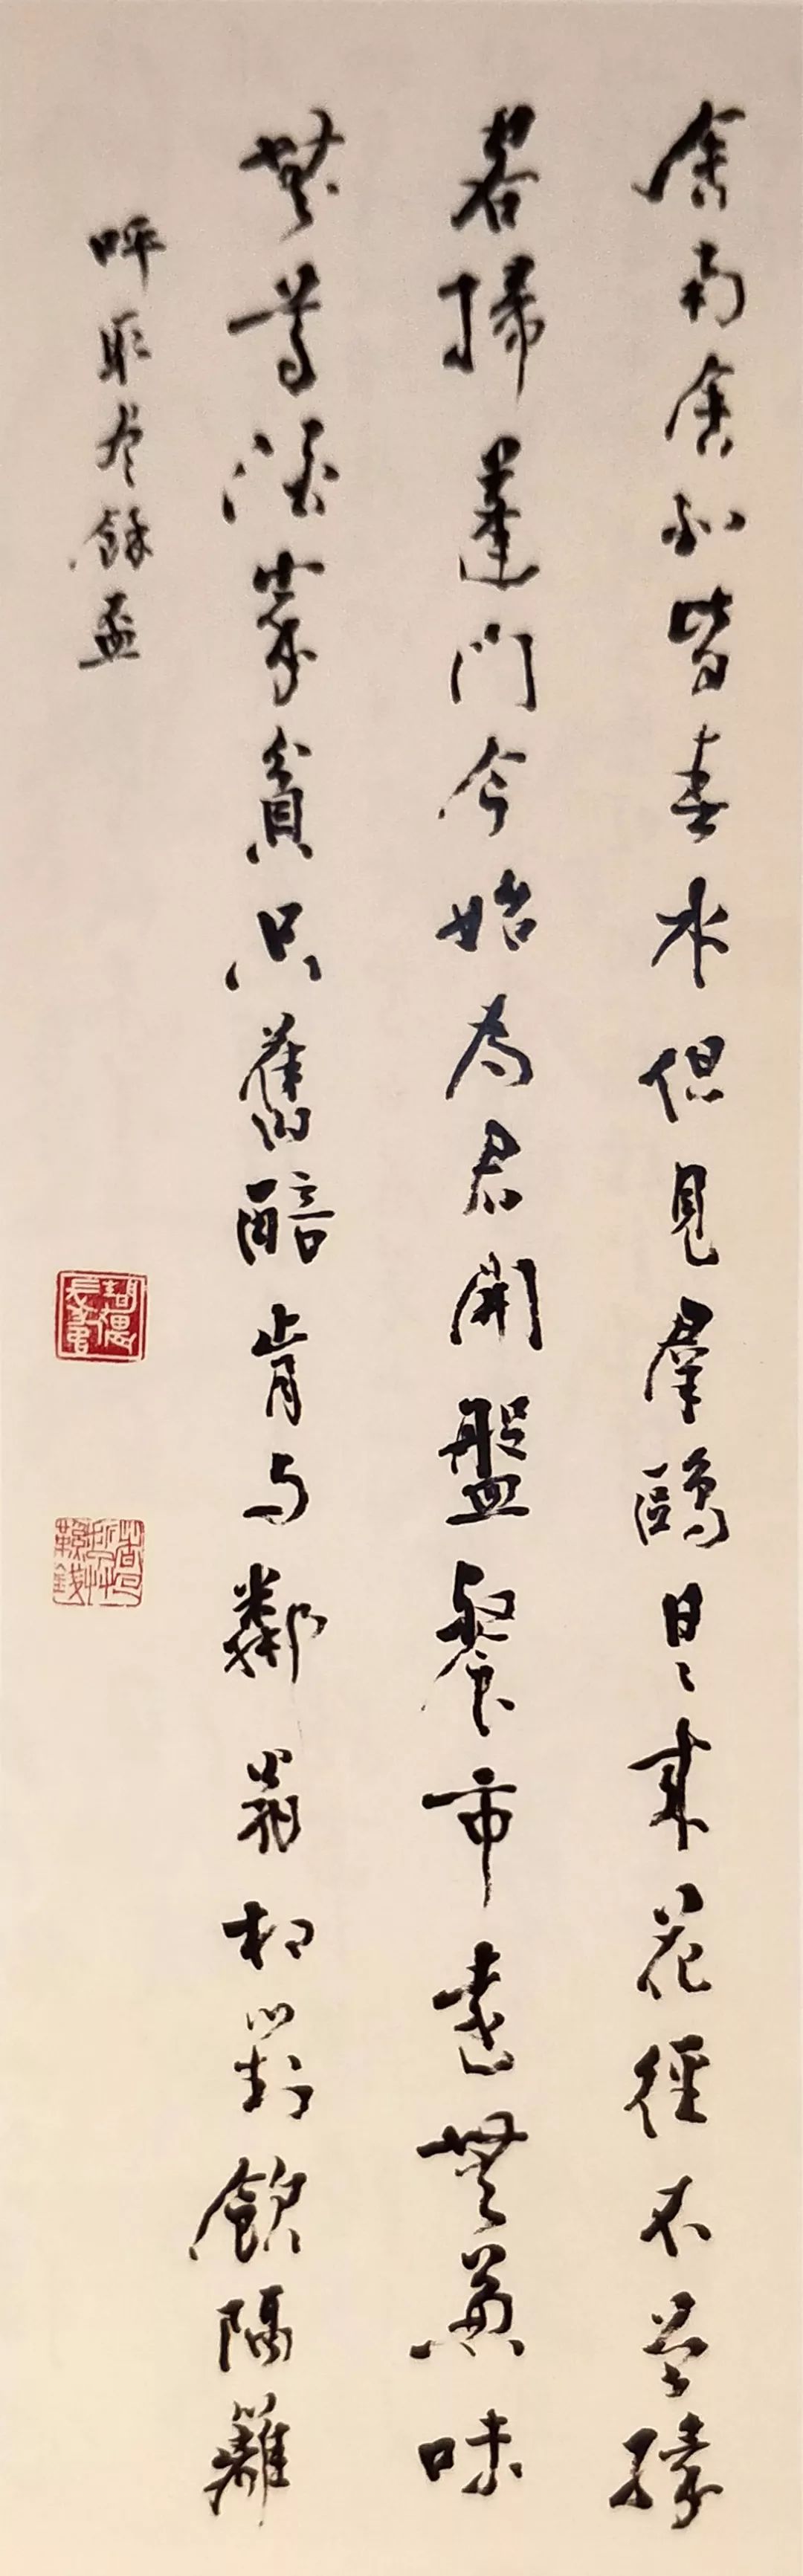 舍南舍北皆春水但見羣鷗日〻來花徑不曾緣
客掃蓬門今始為君開盤餐市遠無兼味
無尊酒家貧只舊醅肯与鄰翁相對飲隔籬
呼取尽餘盃